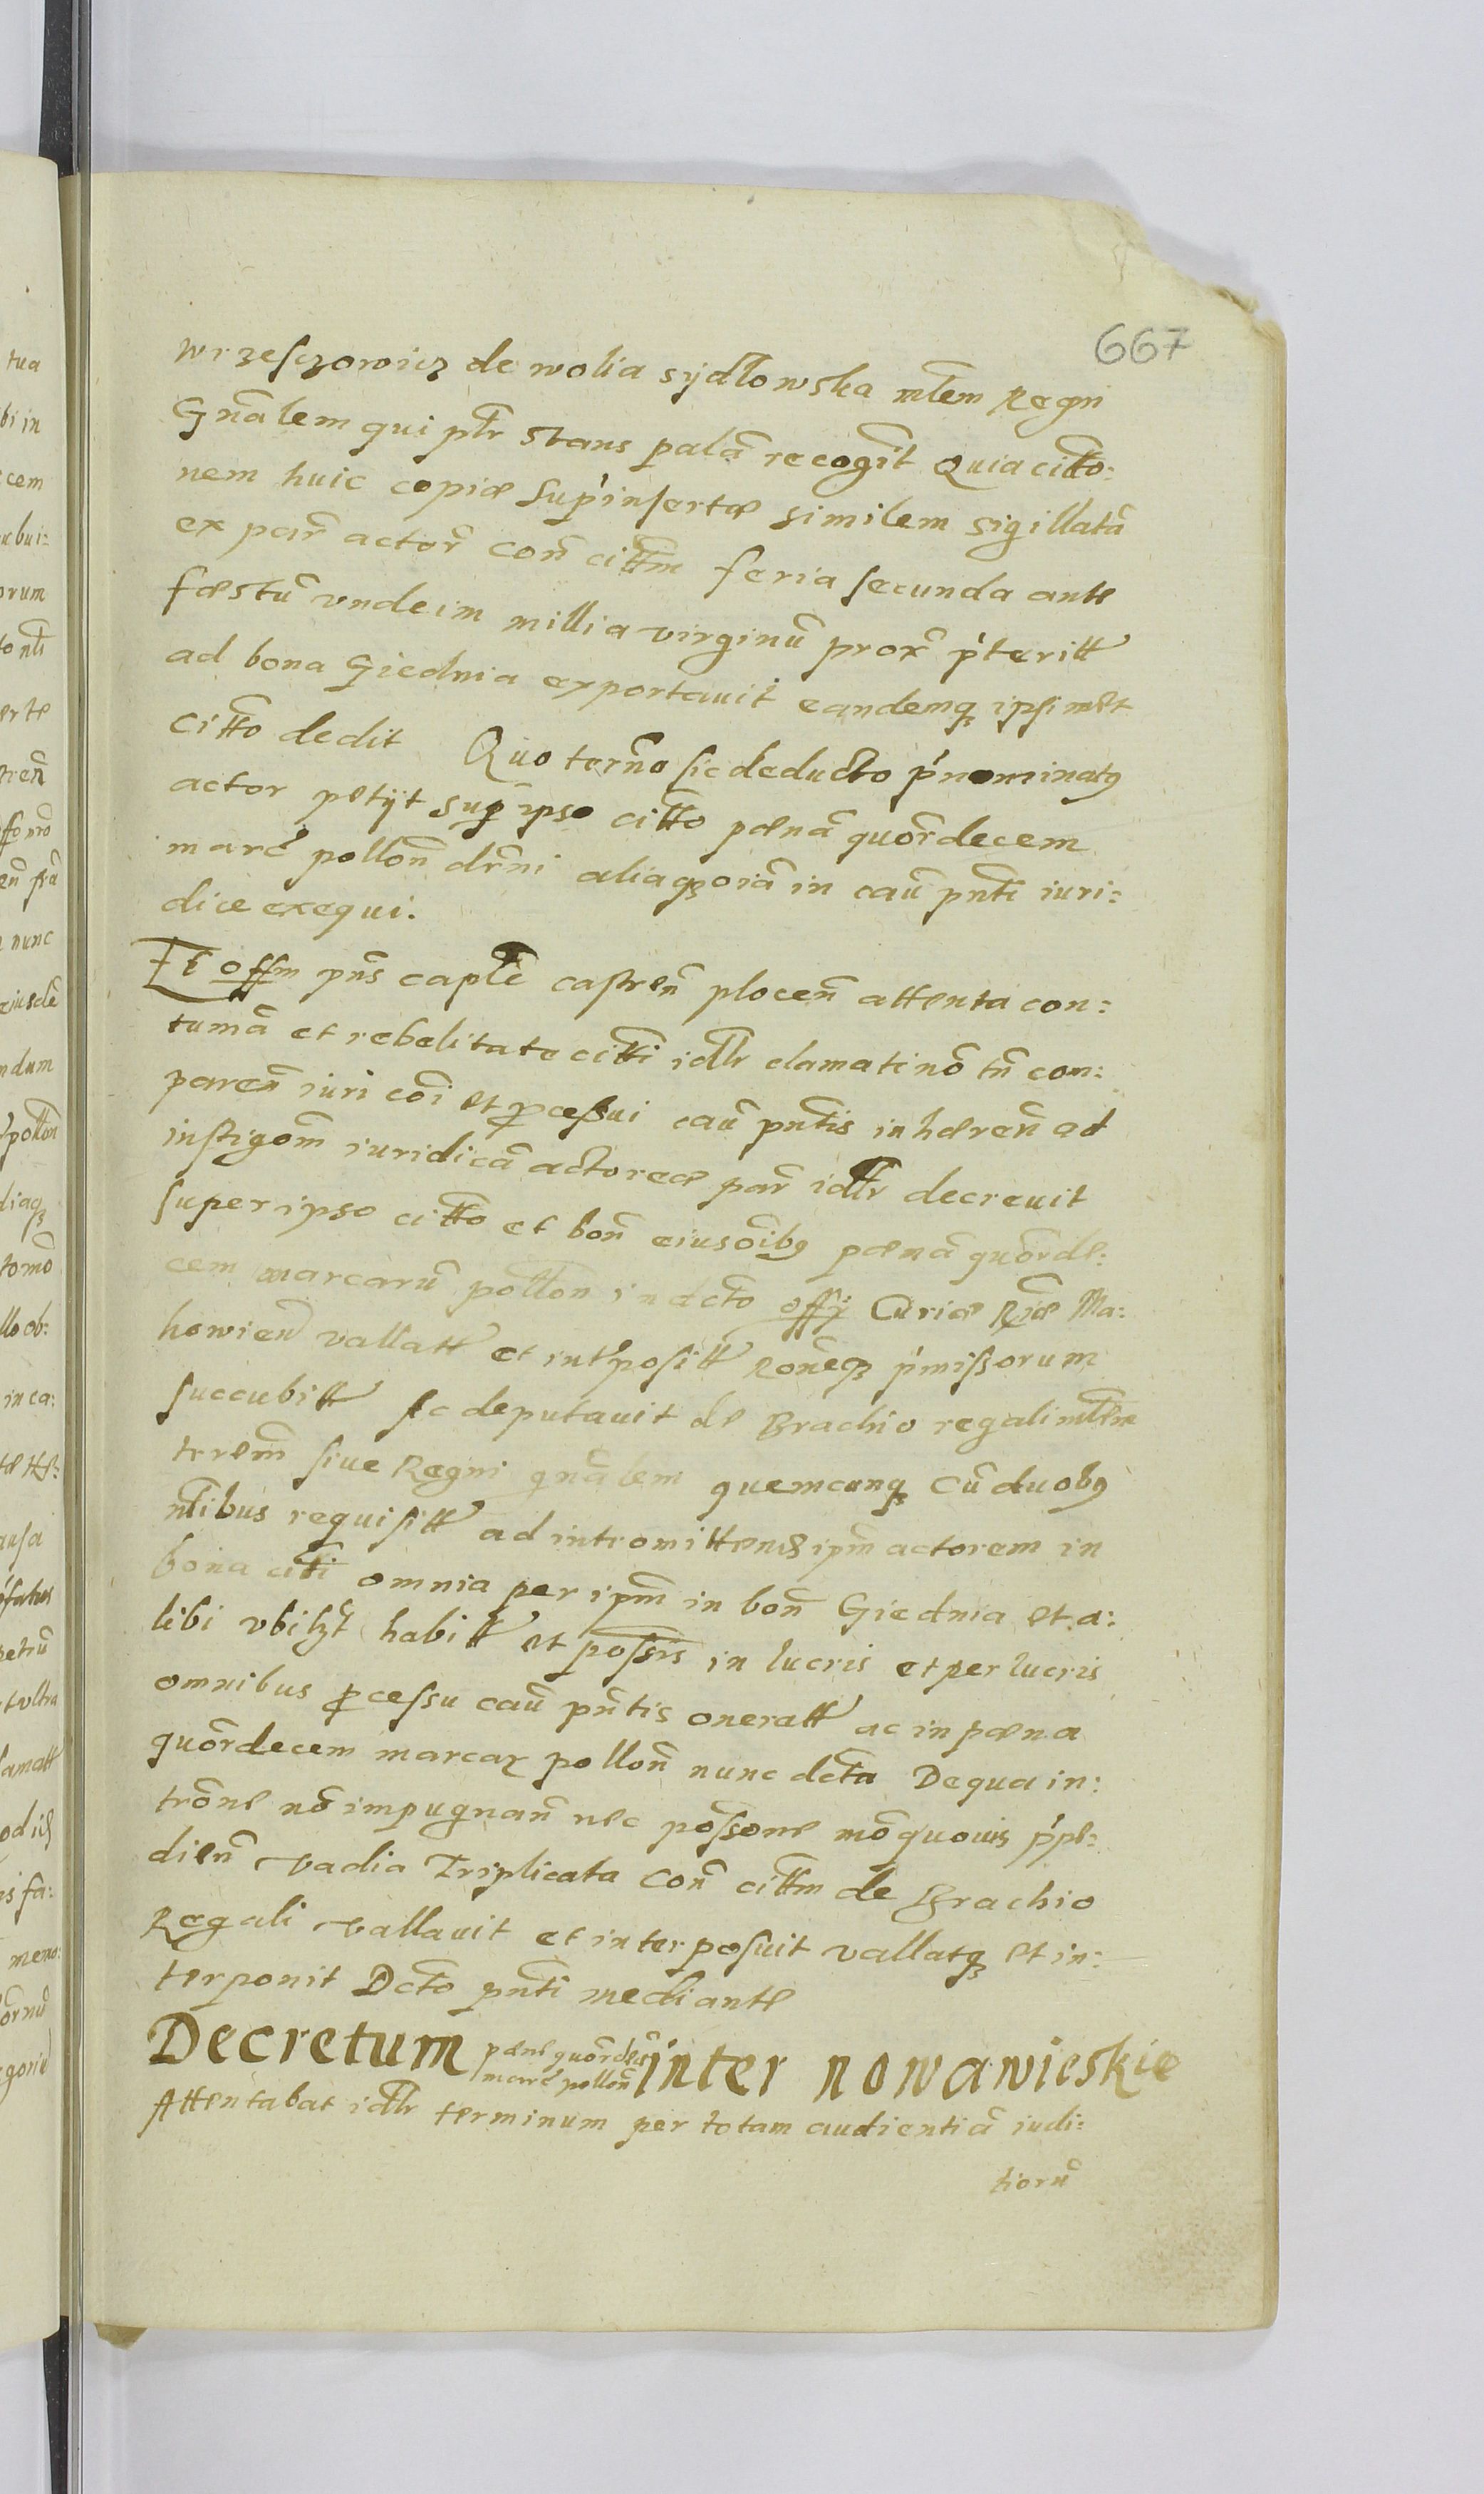 667
wrzesczowicz de wolia sydlowska młem Regni
Gnãlem qui pltr stans palã recogñit Quia citto:
nem huic copiæ sup'insertæ similem sigillatã
ex par actor̃ con̄ cittm̄ feria secunda ante
fæstū vndeim millia virginū prox̄ p'teritt
ad bona Giednia exportauit eandemq; ipsimet
citto dedit Quo termo sic deducto p'nominatq
actor petyt sup ipso citto pænã quor̃decem
marc̃ pollon̄ dr̃ni aliaq; oĩa in cau pnti iuri:
dice exequi.
Et offm pn̄s capłe castren̄ plocen̄ attenta con:
tumã et rebelitate citti idłr clamati nõ tn̄ com:
paren̄ iuri cõi et pcessui cau pntis inhæren̄ ad
instigom̄ iuridicã actoreæ par idłr decreuit
super ipso citto et bon̄ eius õibq pænã quor̃de:
cem marcarū pollon̄ in dcto offy Curiæ Rĩæ Ma:
howien̄ vallatt et intposiłł ronẽq; p'missorum
succubitt Ac deputauit de Brachio regali młem
terem̄ siue Regni gnãlem quemcunq; cū duobq
nłibus requisitt ad intromittend ipm̄ actorem in
bona citti omnia per ipm̄ in bon̄ Giednia et a:
libi vbilzt habitt et possis in lucris et per lucris
omnibus pcessu cau pntis oneratt ac in pæna
quor̃decem marcaz pollon̄ nunc dcta De qua in:
trone nõ impugnan̄ nec possone mõ quouis p'pe:
dien̄ vadia Triplicata con̄ cittm̄ de Brachio
Regali vallauit et interposuit vallatq; et in:
terponit Dcto pnti mediante
Decretum pæne quor̃dec̃ marc̃ pollon̄ inter nowawieskie
Attentabat idłr terminum per totam audientiã iudi:
tiorū